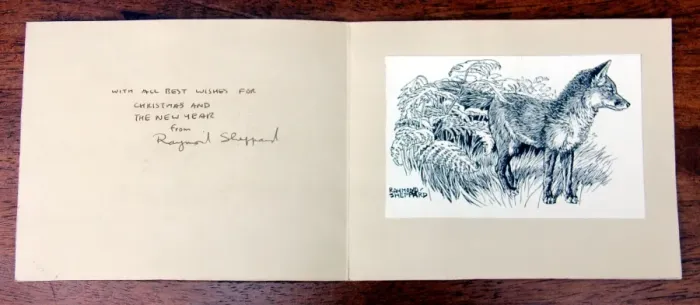 WITH ALL BEST WISHES FOR
CHRISTMAS AND
THE NEW YEAR
from
Raymond Sheppard
RAYMOND
SHEPPARD